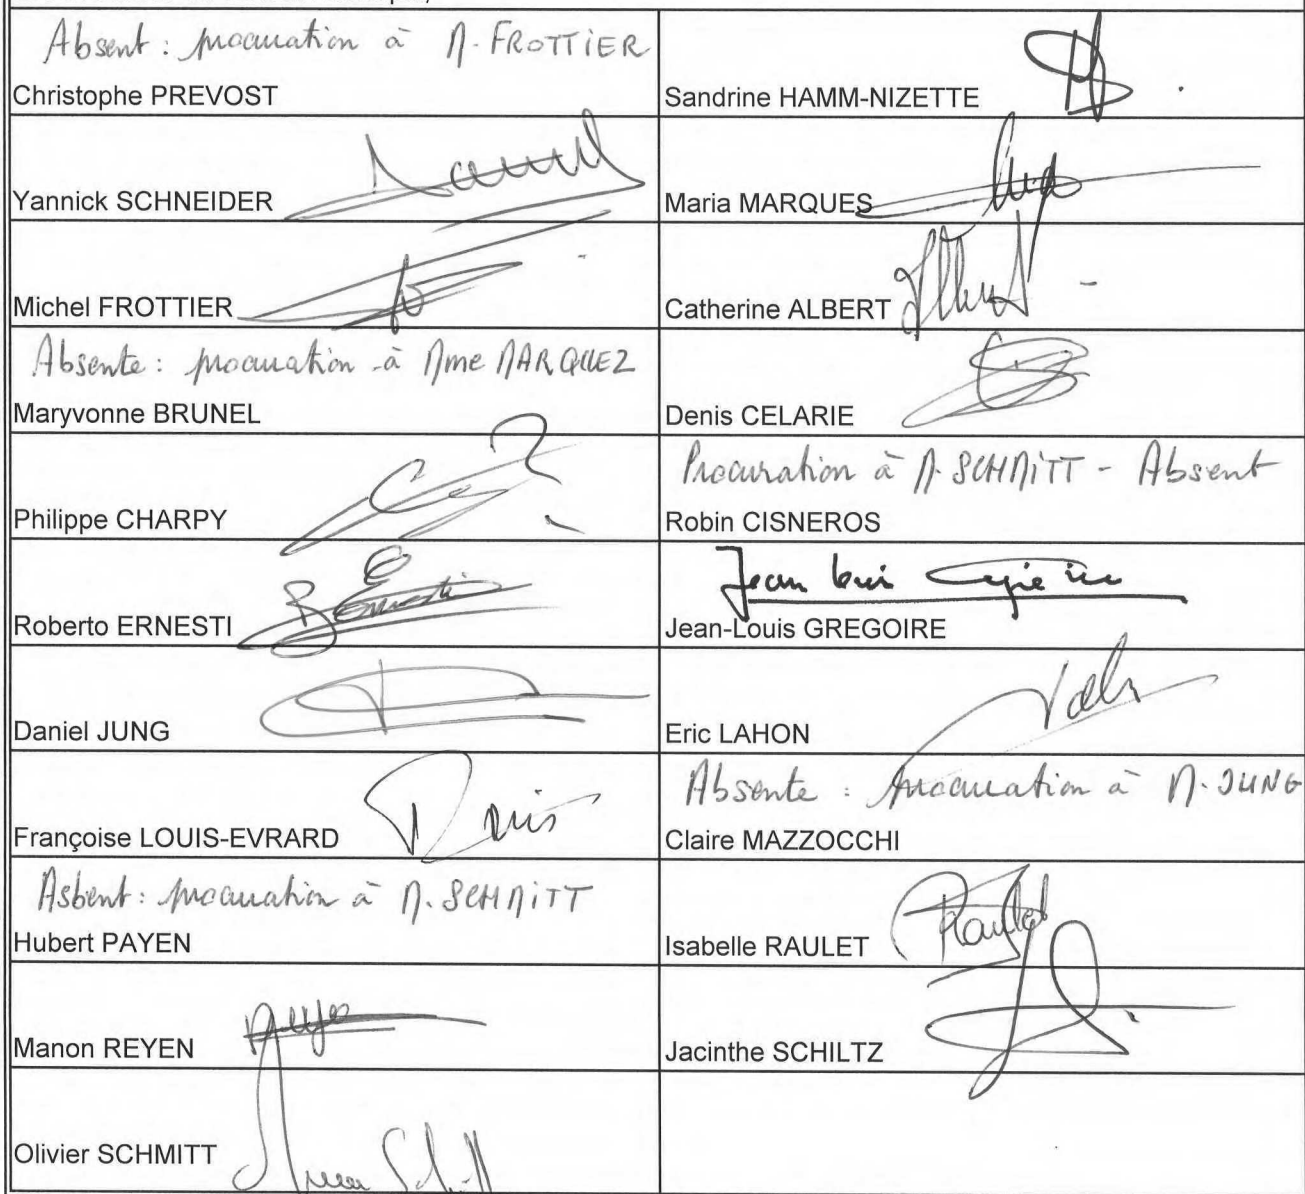 Absent : procuration à M. FROTTiER
Christophe PREVOST
Sandrine HAMM-NIZETTE
Yannick SCHNEIDER
Maria MARQUES
Michel FROTTIER
Catherine ALBERT
Absente : procuration à Mme MARQUEZ
Maryvonne BRUNEL
Denis CELARIE
Philippe CHARPY
Procuration à M. SCHMiTT - Absent
Robin CISNEROS
Roberto ERNESTI
Jean-Louis GREGOIRE
Daniel JUNG
Eric LAHON
Françoise LOUIS-EVRARD
Absente : procuration à M. JUNG
Claire MAZZOCCHI
Asbent : procuration à M. SCHMiTT
Hubert PAYEN
Isabelle RAULET
Raulet
Manon REYEN
Jacinthe SCHILTZ
Olivier SCHMITT